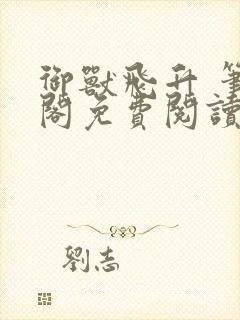 御獸飛升 筆
閣免費閱讀
劉志